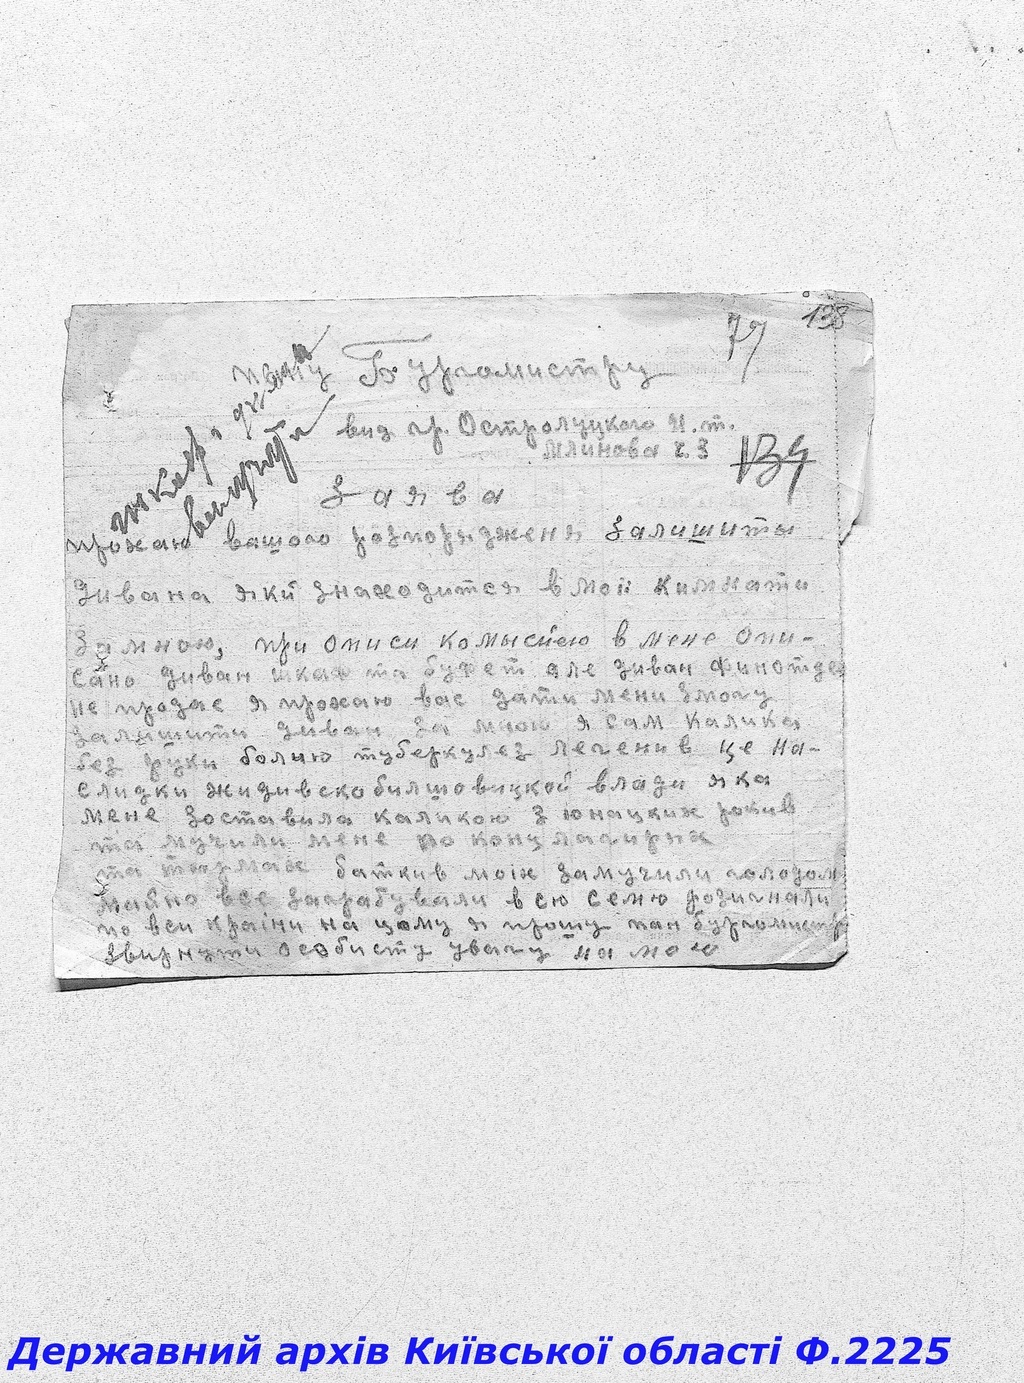 138
77
пану Бургомистру
вид гр. Остролуцкого И. т.
Млинова ч. 3
139
Заява
прохаю вашого розпорядженя залишити
дивана який знаходится в моїї кимнати
за мною, при описи комысиєю в мене опи-
сано диван шкаф та буфет але диван финотдел
не продає я прохаю вас дати мени змогу
залишити диван за мною я сам калика
без руки болию туберкулез легенив це на-
слидки жидивскобилшовицкой влади яка
мене зоставила каликою з юнацких рокив
та мучили мене по концлагирях
та тюрмах баткив моїх замучили голодом
майно все заграбували всю семю розигнали
по вси країни на цому я прошу пан бургомистр
звирнути особисту увагу на мою
Державний архів Київської області Ф.2225